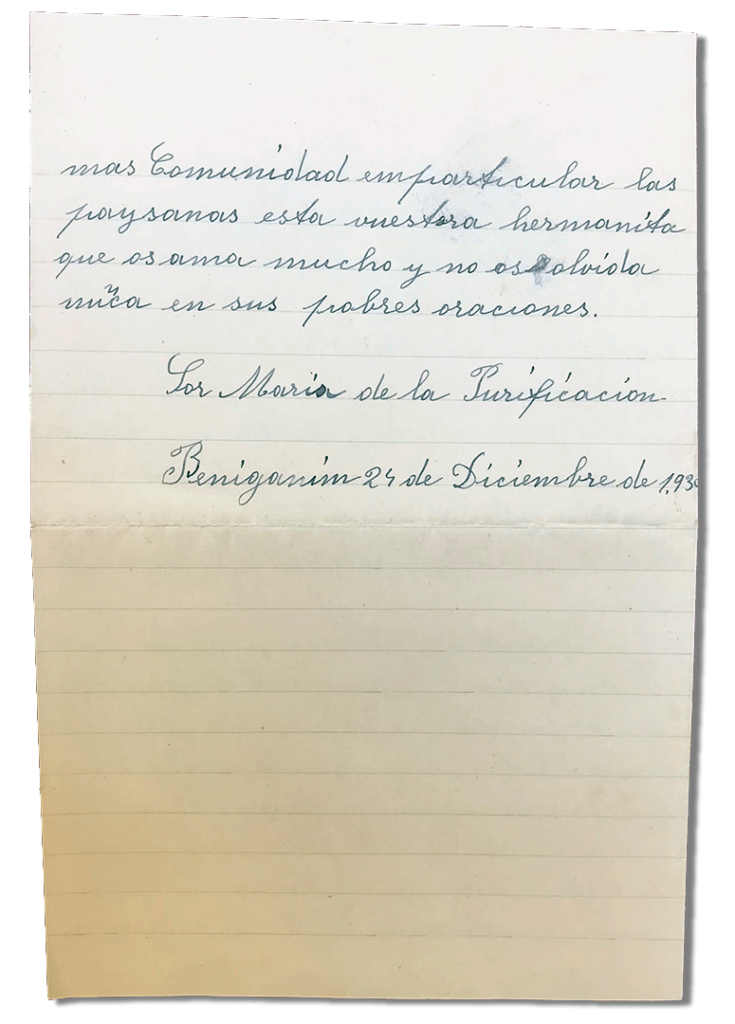 mas Comunidad emparticular las
paysanas esta vuestra hermanita
que os ama mucho y no os olvida
nuca en sus pobres oraciones.
Sor Maria de la Purificacion
Beniganim 24 de Diciembre de